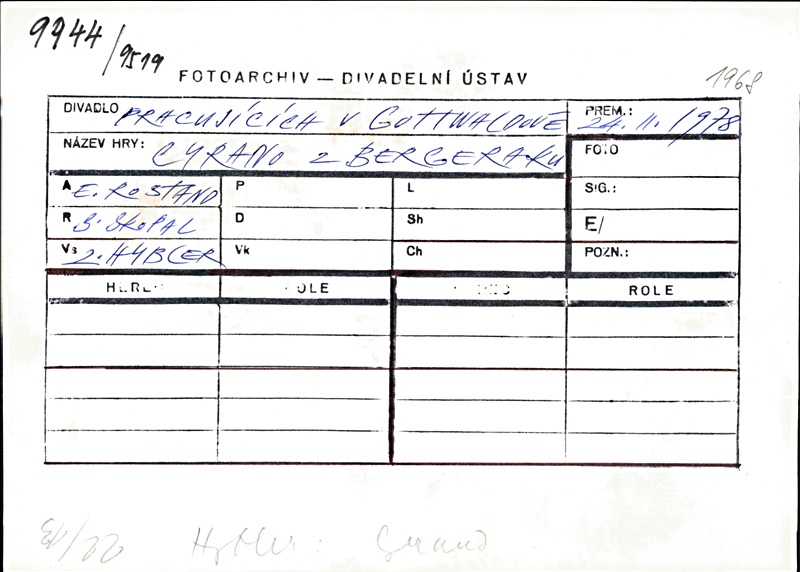 9944/9519
FOTOARCHIV — DIVADELNÍ ÚSTAV
1968
DIVADLO PRACUJÍCÍCH V GOTTWALDOVĚ
PREM.: 24. 11. 1978
NÁZEV HRY: CYRANO Z BERGERAKU
FOTO
A E. ROSTAND
P
L
SIG.:
R S. SKOPAL
D
Sh
E/
Vs Z. HYBLER
Vk
Ch
POZN.:
ROLE
Hybler: